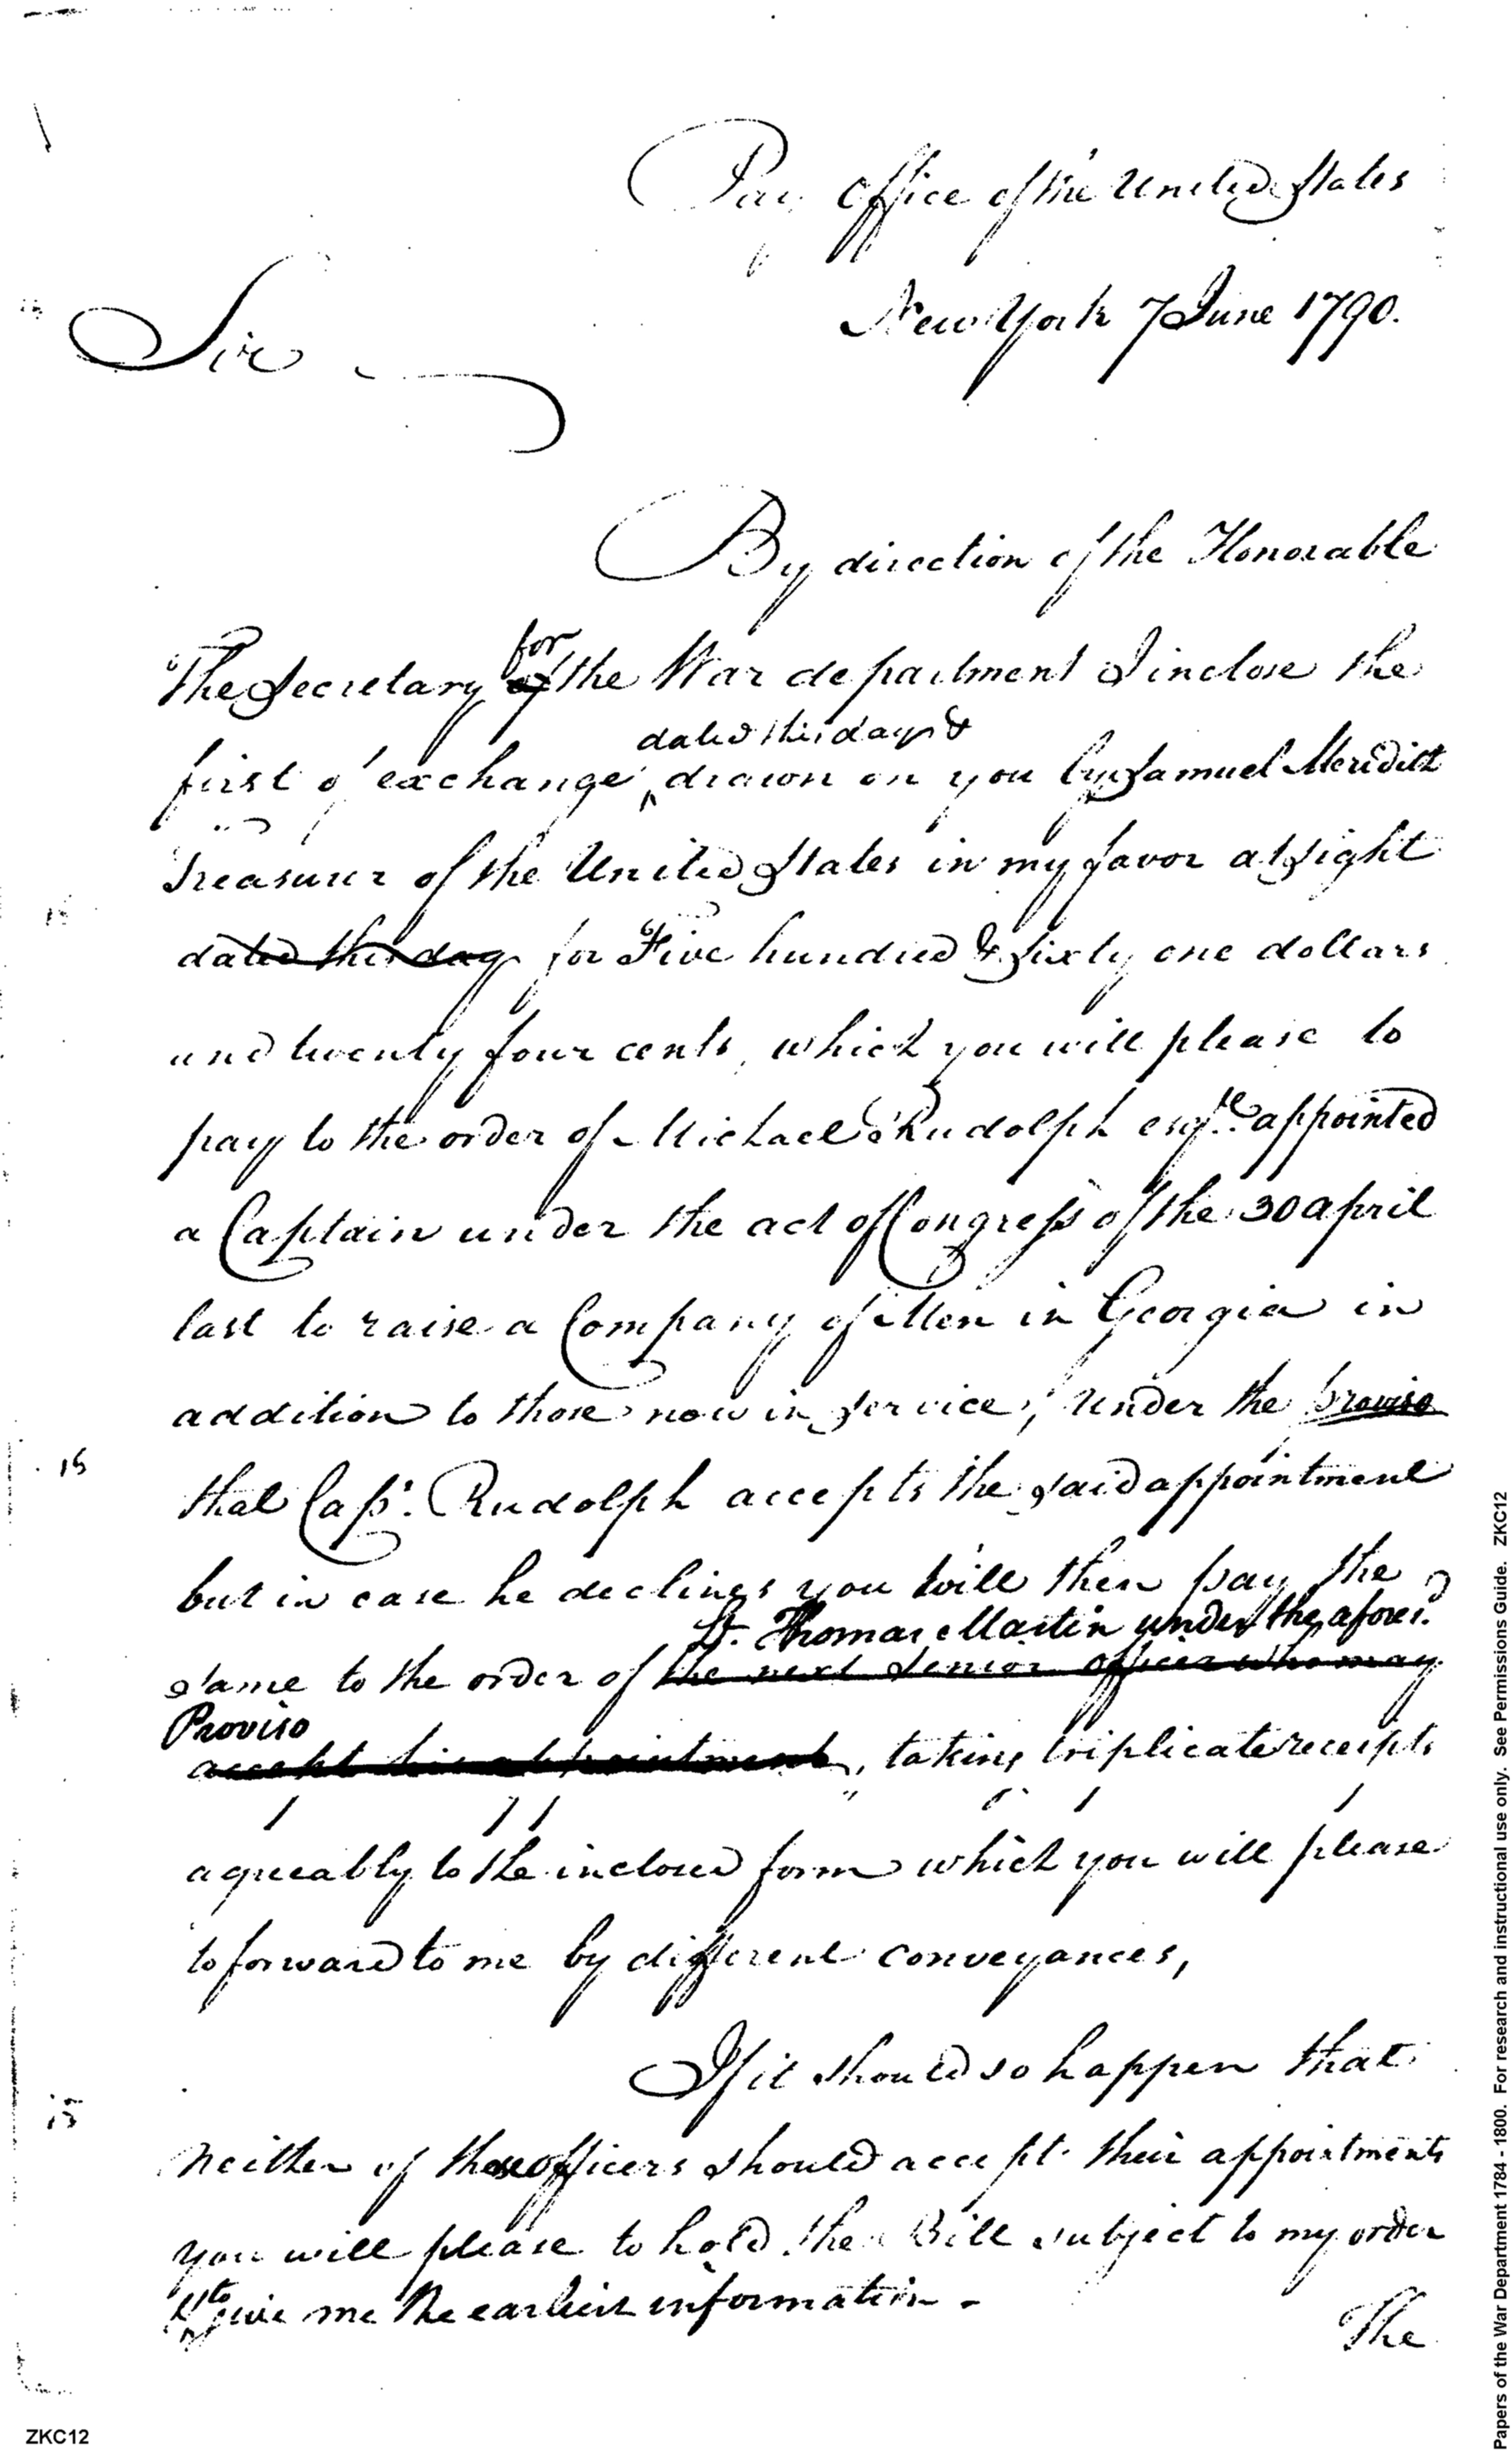 Pay Office of the United States
New York 7 June 1790.
Sir
By direction of the Honorable
for
The Secretary of the War department I inclose the
dated this day &
first of exchange drawn on you by Samuel Meredith
Treasurer of the United States in my favor at sight
dated this day for Five hundred & sixty one dollars
and twenty four cents, which you will please to
pay to the order of Michael Rudolph esqre. appointed
a Captain under the act of Congress of the 30 april
last to raise a Company of Men in Georgia in
addition to those now in service, under the proviso
that Capt. Rudolph accepts the said appointment
but in case he declines you will then pay the
Lt. Thomas Martin under the aforesd.
same to the order of the next senior officer who may
Proviso
accept his appointment, taking triplicate receipts
agreeably to the inclosed form which you will please
to forward to me by different conveyances,
If it should so happen that
neither of these officers should accept their appointments
you will please to hold the Bill subject to my order
to
& give me the earliest information -
The
15
ZKC12
Papers of the War Department 1784 - 1800. For research and instructional use only. See Permissions Guide. ZKC12